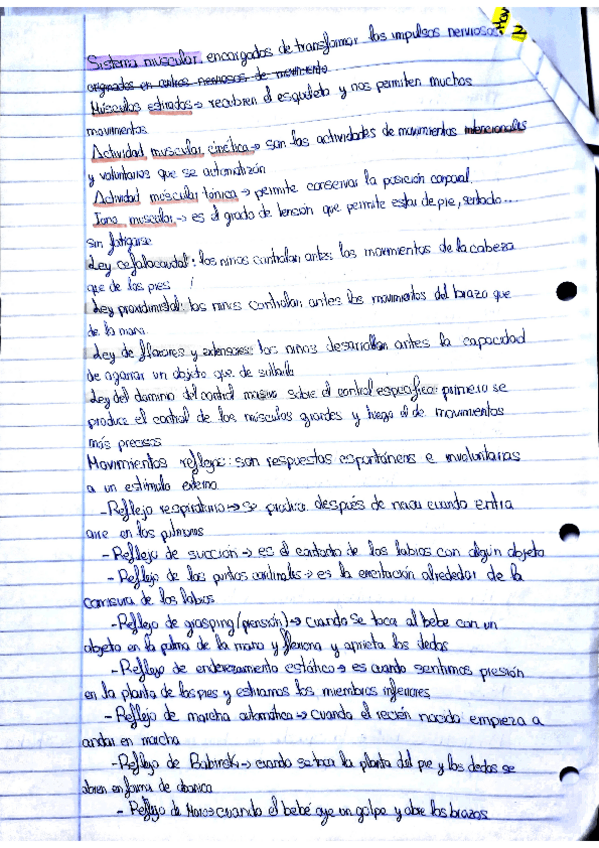 Sistema muscular: encargados de transformar los impulsos nerviosos
originados en centros nerviosos de movimiento
Músculos estriados → recubren el esqueleto y nos permiten muchos
movimientos.
Actividad muscular cinética → son las actividades de movimientos intencionales
y voluntarios que se automatizán
Actividad múscular tónica → permite conservar la posición corporal.
Tono muscular → es el grado de tensión que permite estar de pie, sentado...
sin fatigarse
Ley cefalocaudal: los niños controlan antes los movimientos de la cabeza
que de los pies
Ley proximodistal: los niños controlan antes los movimientos del brazo que
de la mano.
Ley de flexores y extensores: los niños desarrollan antes la capacidad
de agarrar un objeto que de soltarlo
Ley del dominio del control masivo sobre el control especifico: primero se
produce el control de los músculos grandes y luego el de movimientos
más precisos
Movimientos reflejos: son respuestas espontáneas e involuntarias
a un estímulo externo
- Reflejo respiratorio → se produce después de nacer cuando entra
aire en los pulmones
- Reflejo de succión → es el contacto de los labios con algún objeto
- Reflejo de los puntos cardinales → es la excitación alrededor de la
comisura de los labios
- Reflejo de grasping (prensión) → cuando se toca al bebe con un
objeto en la palma de la mano y flexiona y aprieta los dedos
- Reflejo de enderezamiento estático → es cuando sentimos presión
en la planta de los pies y estiramos los miembros inferiores
- Reflejo de marcha automática → cuando el recién nacido empieza a
andar en marcha
- Reflejo de Babinski → cuando se toca la planta del pie y los dedos se
abren en forma de abanico
- Reflejo de Moro → cuando el bebé oye un golpe y abre los brazos